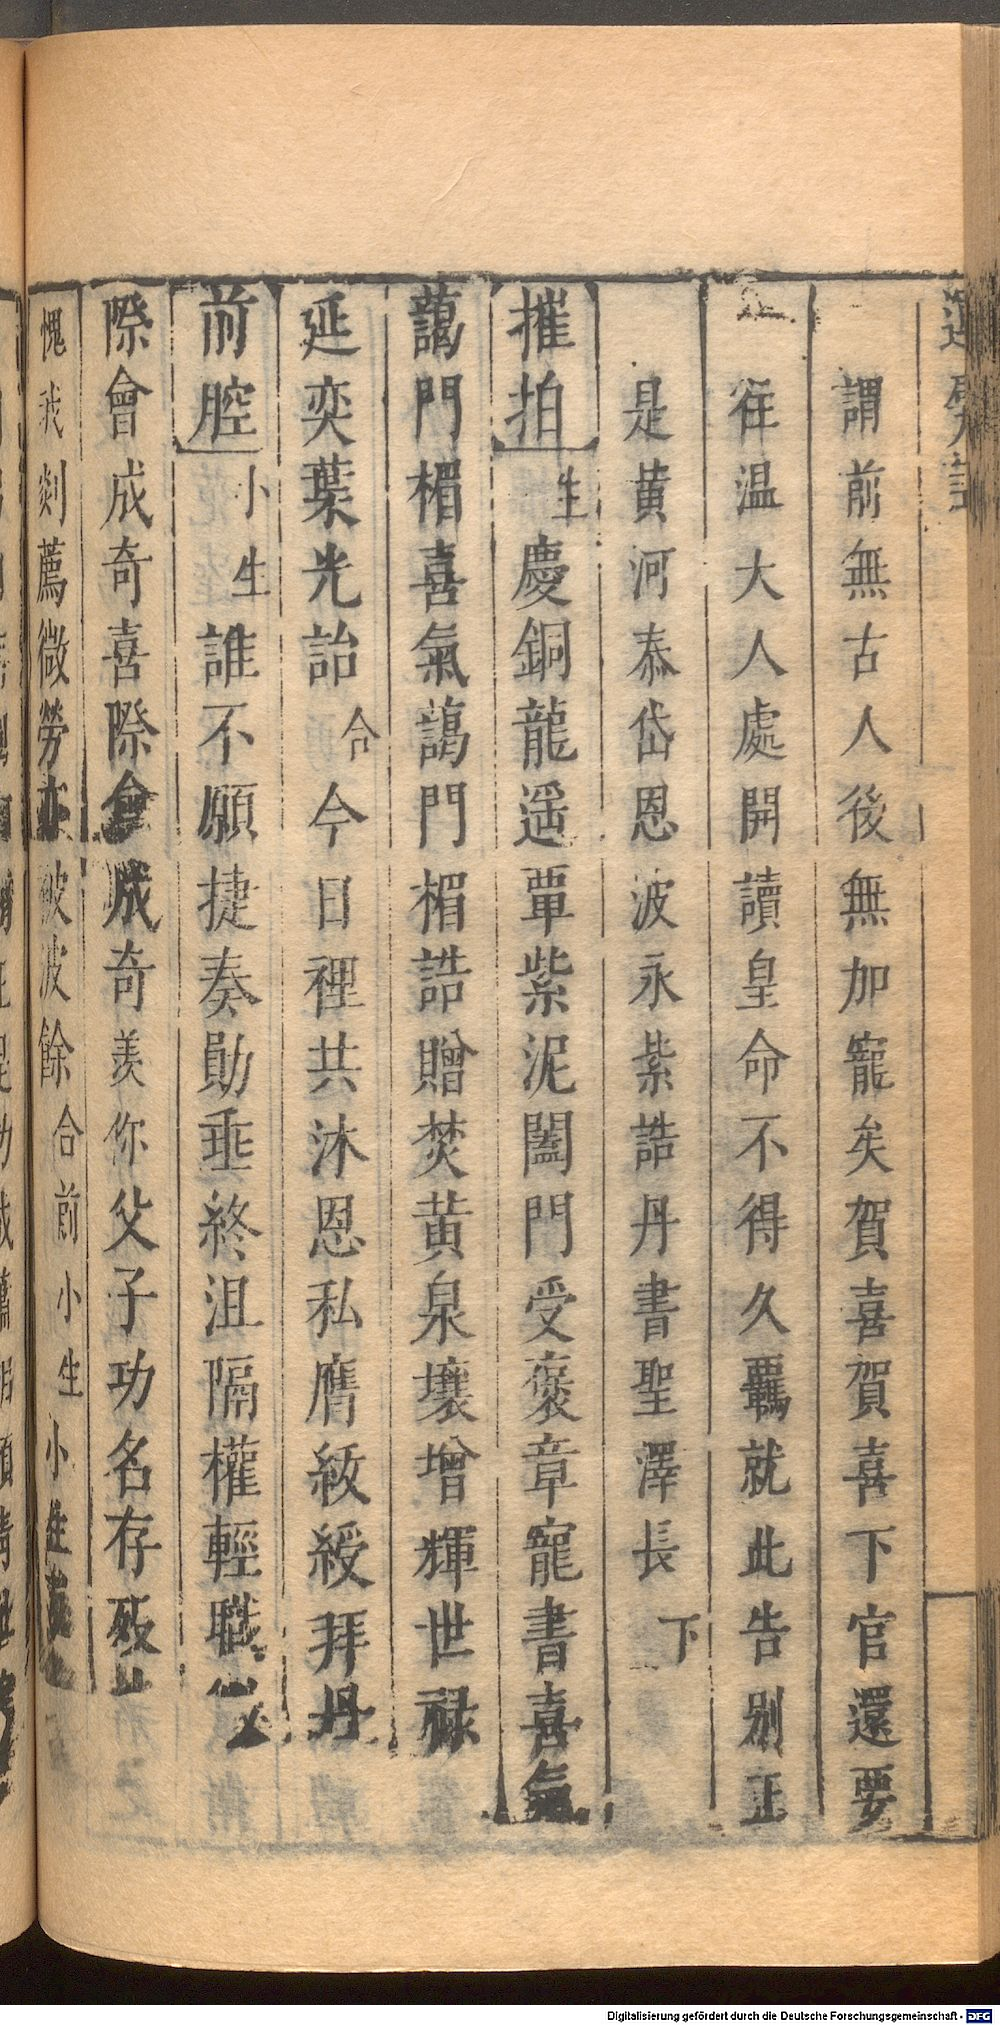 謂前無古人後無加寵矣賀喜賀喜下官還要
往温大人處開讀皇命不得久覊就此告别正
是黄河泰岱恩波永紫誥丹書聖澤長下
摧拍生慶銅龍遥覃紫泥闔門受褒章寵書喜氣
藹門楣喜氣藹門楣誥贈焚黄泉壤增輝世禄
延奕葉光詒合今日裡共沐恩私膺紱綬拜丹
前腔小生誰不願捷奏勛垂終沮隔權輕職
際會成奇喜際會成奇羡你父子功名存殁
愧我剡薦微勞亦被波餘合前小生小生
Digitalisierung gefördert durch die Deutsche Forschungsgemeinschaft - DFG